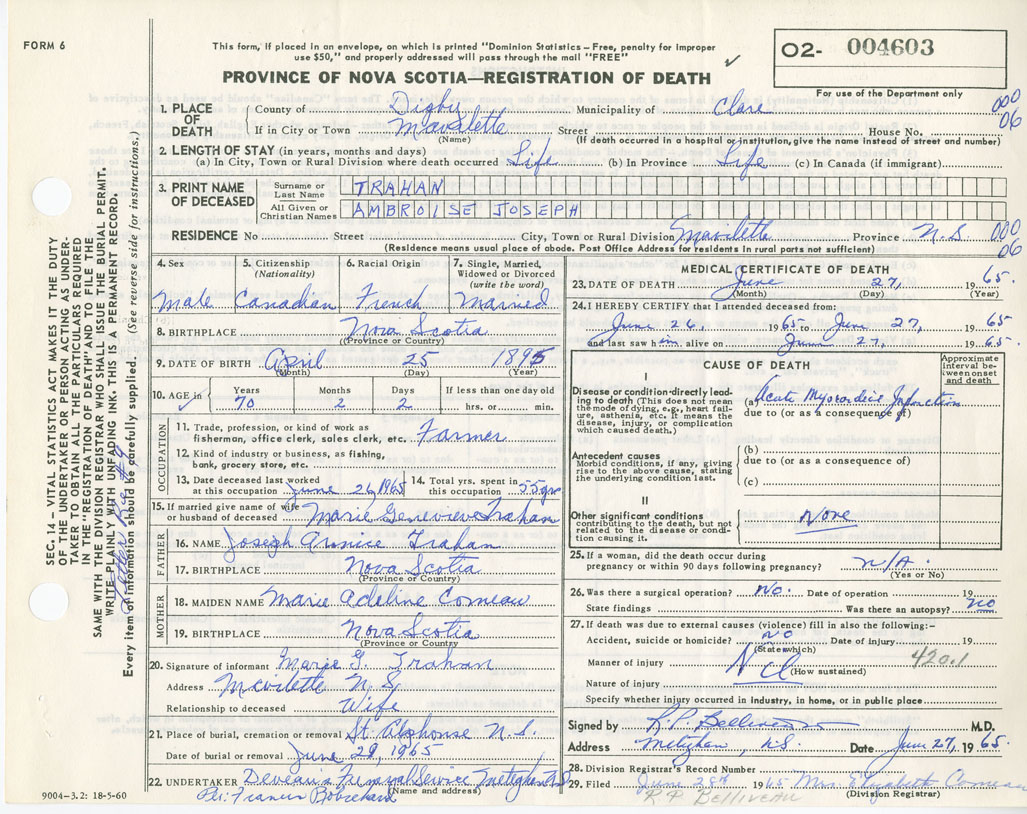 FORM 6
This form, if placed in an envelope, on which is printed "Dominion Statistics – Free, penalty for improper
use $50," and properly addressed will pass through the mail "FREE"
✓
O2- 004603
PROVINCE OF NOVA SCOTIA—REGISTRATION OF DEATH
For use of the Department only
1. PLACE OF DEATH
County of Digby Municipality of Clare 000
If in City or Town Mavilette Street House No. 06
(Name) (If death occurred in a hospital or institution, give the name instead of street and number)
2. LENGTH OF STAY (in years, months and days)
(a) In City, Town or Rural Division where death occurred Life (b) In Province Life (c) In Canada (if immigrant)
3. PRINT NAME OF DECEASED
Surname or Last Name TRAHAN
All Given or Christian Names AMBROISE JOSEPH
RESIDENCE No Street City, Town or Rural Division Mavilette Province N.S 000
(Residence means usual place of abode. Post Office Address for residents in rural parts not sufficient) 06
4. Sex Male
5. Citizenship (Nationality) Canadian
6. Racial Origin French
7. Single, Married, Widowed or Divorced (write the word) Married
8. BIRTHPLACE Nova Scotia
(Province or Country)
9. DATE OF BIRTH April 25 1895
(Month) (Day) (Year)
10. AGE in Years Months Days If less than one day old
✓ 70 2 2 hrs. or min.
OCCUPATION
11. Trade, profession, or kind of work as
fisherman, office clerk, sales clerk, etc. Farmer
12. Kind of industry or business, as fishing,
bank, grocery store, etc.
13. Date deceased last worked at this occupation June 26, 1965
14. Total yrs. spent in this occupation 55 yrs
15. If married give name of wife
or husband of deceased Marie Genevieve Trahan
FATHER
16. NAME Joseph Trahan
17. BIRTHPLACE Nova Scotia
(Province or Country)
MOTHER
18. MAIDEN NAME Marie Adeline Comeau
19. BIRTHPLACE Nova Scotia
(Province or Country)
20. Signature of informant Marie G. Trahan
Address Mavilette N.S
Relationship to deceased Wife
21. Place of burial, cremation or removal St. Alphonse N.S.
Date of burial or removal June 29, 1965
22. UNDERTAKER Deveau's Funeral Service Meteghan N.S
Per: Francis
(Name and address)
9004-3.2: 18-5-60
MEDICAL CERTIFICATE OF DEATH
23. DATE OF DEATH June 27, 1965.
(Month) (Day) (Year)
24. I HEREBY CERTIFY that I attended deceased from:
June 26, 1965 to June 27, 1965
and last saw him alive on June 27, 1965.
CAUSE OF DEATH
Approximate interval between onset and death
I
Disease or condition directly leading to death (This does not mean the mode of dying, e.g., heart failure, asthenia, etc. It means the disease, injury, or complication which caused death.)
(a) Acute Myocardial Infarction
due to (or as a consequence of)
Antecedent causes
Morbid conditions, if any, giving rise to the above cause, stating the underlying condition last.
(b)
due to (or as a consequence of)
(c)
II
Other significant conditions
contributing to the death, but not related to the disease or condition causing it.
None
25. If a woman, did the death occur during
pregnancy or within 90 days following pregnancy? N/A.
(Yes or No)
26. Was there a surgical operation? No. Date of operation 19
State findings Was there an autopsy? No
27. If death was due to external causes (violence) fill in also the following:–
Accident, suicide or homicide? No Date of injury 19
(State which) 420.1
Manner of injury Ncl
(How sustained)
Nature of injury
Specify whether injury occurred in industry, in home, or in public place
Signed by R.P. Belliveau M.D.
Address Meteghan, N.S Date June 27, 1965.
28. Division Registrar's Record Number
29. Filed June 28th 1965 Mrs Elizabeth Comeau
R P BELLIVEAU (Division Registrar)
SEC. 14 – VITAL STATISTICS ACT MAKES IT THE DUTY
OF THE UNDERTAKER OR PERSON ACTING AS UNDER-
TAKER TO OBTAIN ALL THE PARTICULARS REQUIRED
IN THE "REGISTRATION OF DEATH" AND TO FILE THE
SAME WITH THE DIVISION REGISTRAR WHO SHALL ISSUE THE BURIAL PERMIT.
WRITE PLAINLY WITH UNFADING INK. THIS IS A PERMANENT RECORD.
Every item of information should be carefully supplied. (See reverse side for instructions.)